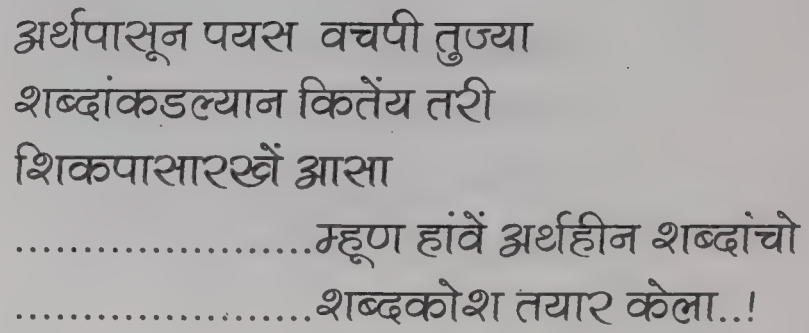 अर्थपासून पयस वचपी तुज्या
शब्दांकडल्यान कितेंय तरी
शिकपासारखें आसा
......................म्हूण हांवें अर्थहीन शब्दांचो
......................शब्दकोश तयार केला..!